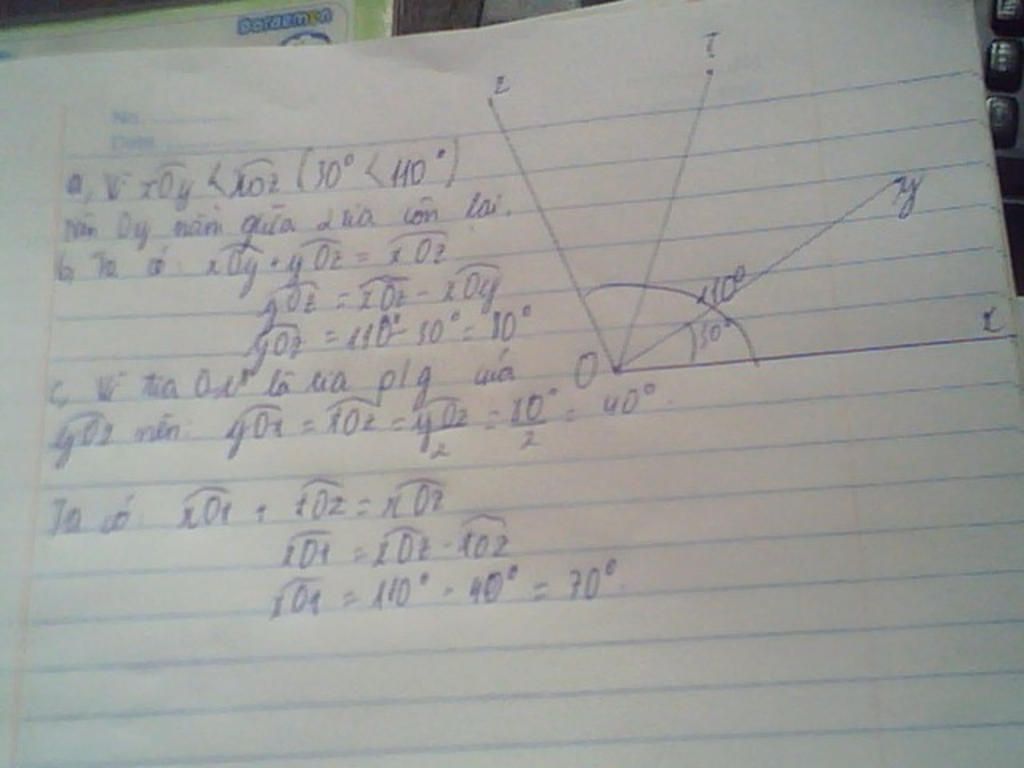 Doraemon
No
Date
a, Vì xOy < xOz (30° < 110°)
nên Oy nằm giữa 2 tia còn lại.
b, Ta có: xOy + yOz = xOz
yOz = xOz - xOy
yOz = 110° - 30° = 80°
c, Vì tia là tia p/g của
yOz nên: yOt = tOz = yOz/2 = 80°/2 = 40°.
Ta có: xOt + tOz = xOz
xOt = xOz - tOz
xOt = 110° - 40° = 70°.
z
t
y
110°
30°
x
O